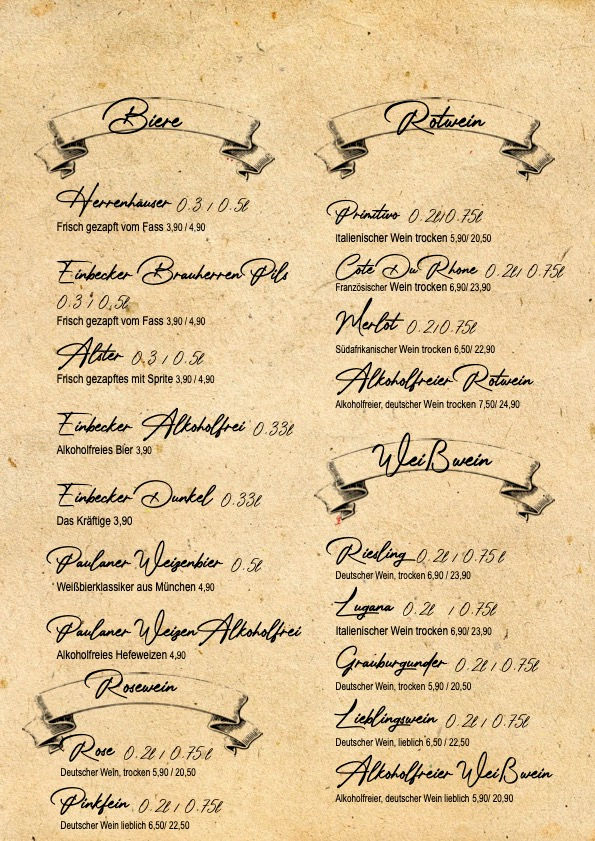 Biere
Herrenhäuser 0.3 / 0.5l
Frisch gezapft vom Fass 3,90 / 4,90
Einbecker Brauherren Pils
0.3 / 0.5l
Frisch gezapft vom Fass 3,90 / 4,90
Alster 0.3 / 0.5l
Frisch gezapftes mit Sprite 3,90 / 4,90
Einbecker Alkoholfrei 0.33l
Alkoholfreies Bier 3,90
Einbecker Dunkel 0.33l
Das Kräftige 3,90
Paulaner Weizenbier 0.5l
Weißbierklassiker aus München 4,90
Paulaner Weizen Alkoholfrei
Alkoholfreies Hefeweizen 4,90
Rosewein
Rose 0.2l / 0.75l
Deutscher Wein, trocken 5,90 / 20,50
Pinkfein 0.2l / 0.75l
Deutscher Wein lieblich 6,50/ 22,50
Rotwein
Primitivo 0.2l/0.75l
Italienischer Wein trocken 5,90/ 20,50
Cote Du Rhone 0.2l/ 0.75l
Französischer Wein trocken 6,90/ 23,90
Merlot 0.2/0.75l
Südafrikanischer Wein trocken 6,50/ 22,90
Alkoholfreier Rotwein
Alkoholfreier, deutscher Wein trocken 7,50/ 24,90
Weißwein
Riesling 0.2l / 0.75 l
Deutscher Wein, trocken 6,90 / 23,90
Lugana 0.2l / 0.75l
Italienischer Wein trocken 6,90/ 23,90
Grauburgunder 0.2l / 0.75l
Deutscher Wein, trocken 5,90 / 20,50
Lieblingswein 0.2l / 0.75l
Deutscher Wein, lieblich 6,50 / 22,50
Alkoholfreier Weißwein
Alkoholfreier, deutscher Wein lieblich 5,90/ 20,90